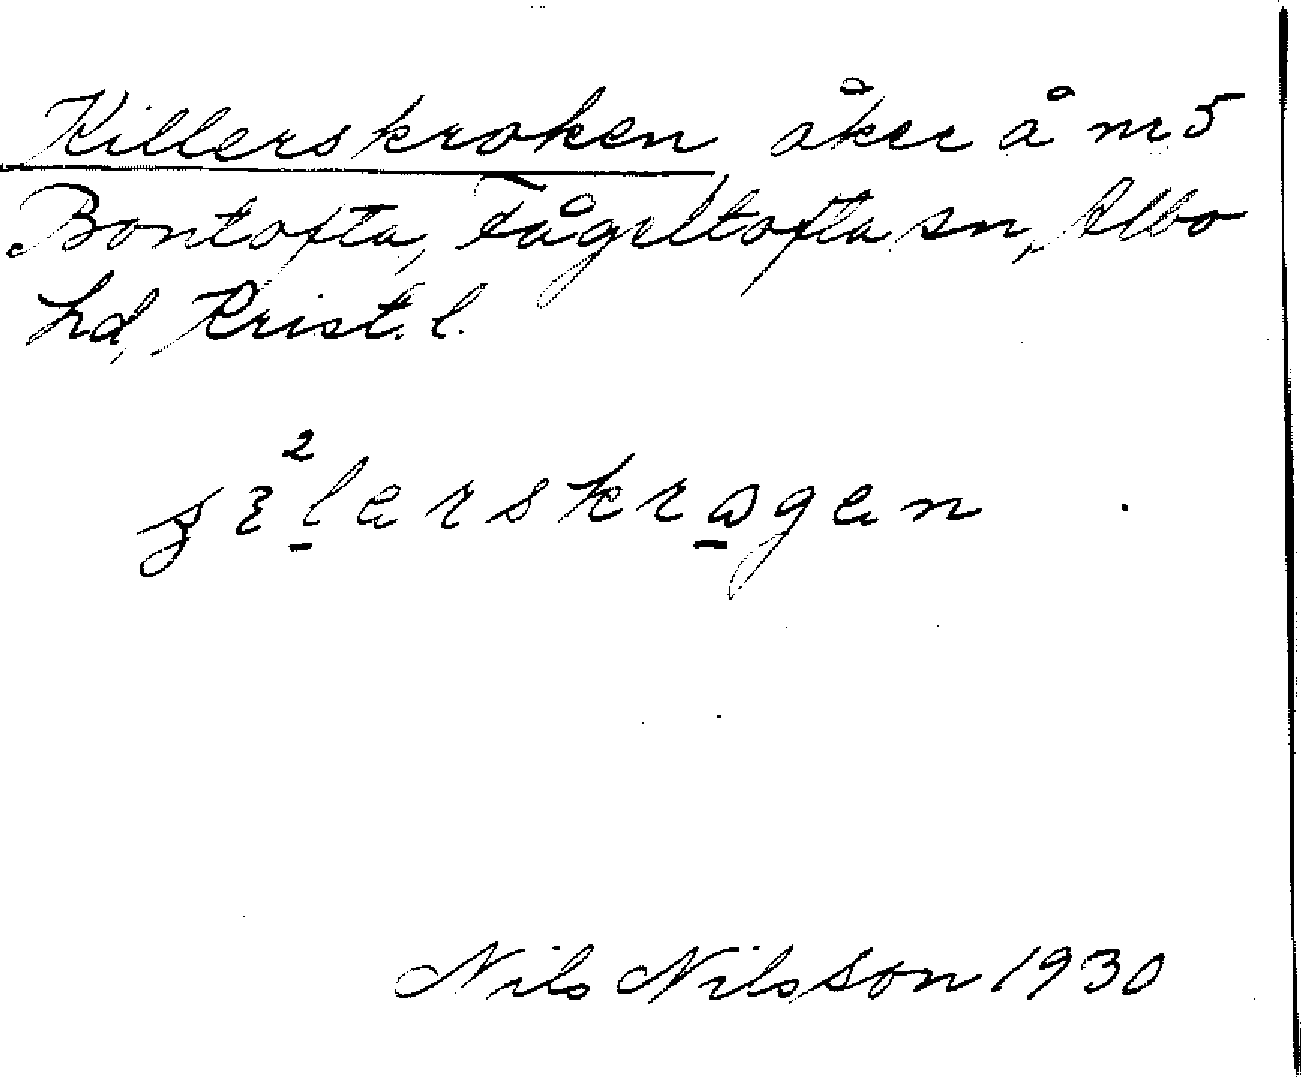 Killerskroken åker å nr 5
Bontofta, Fågeltofta sn, Albo
hd, Krist. l.
Nils Nilsson 1930